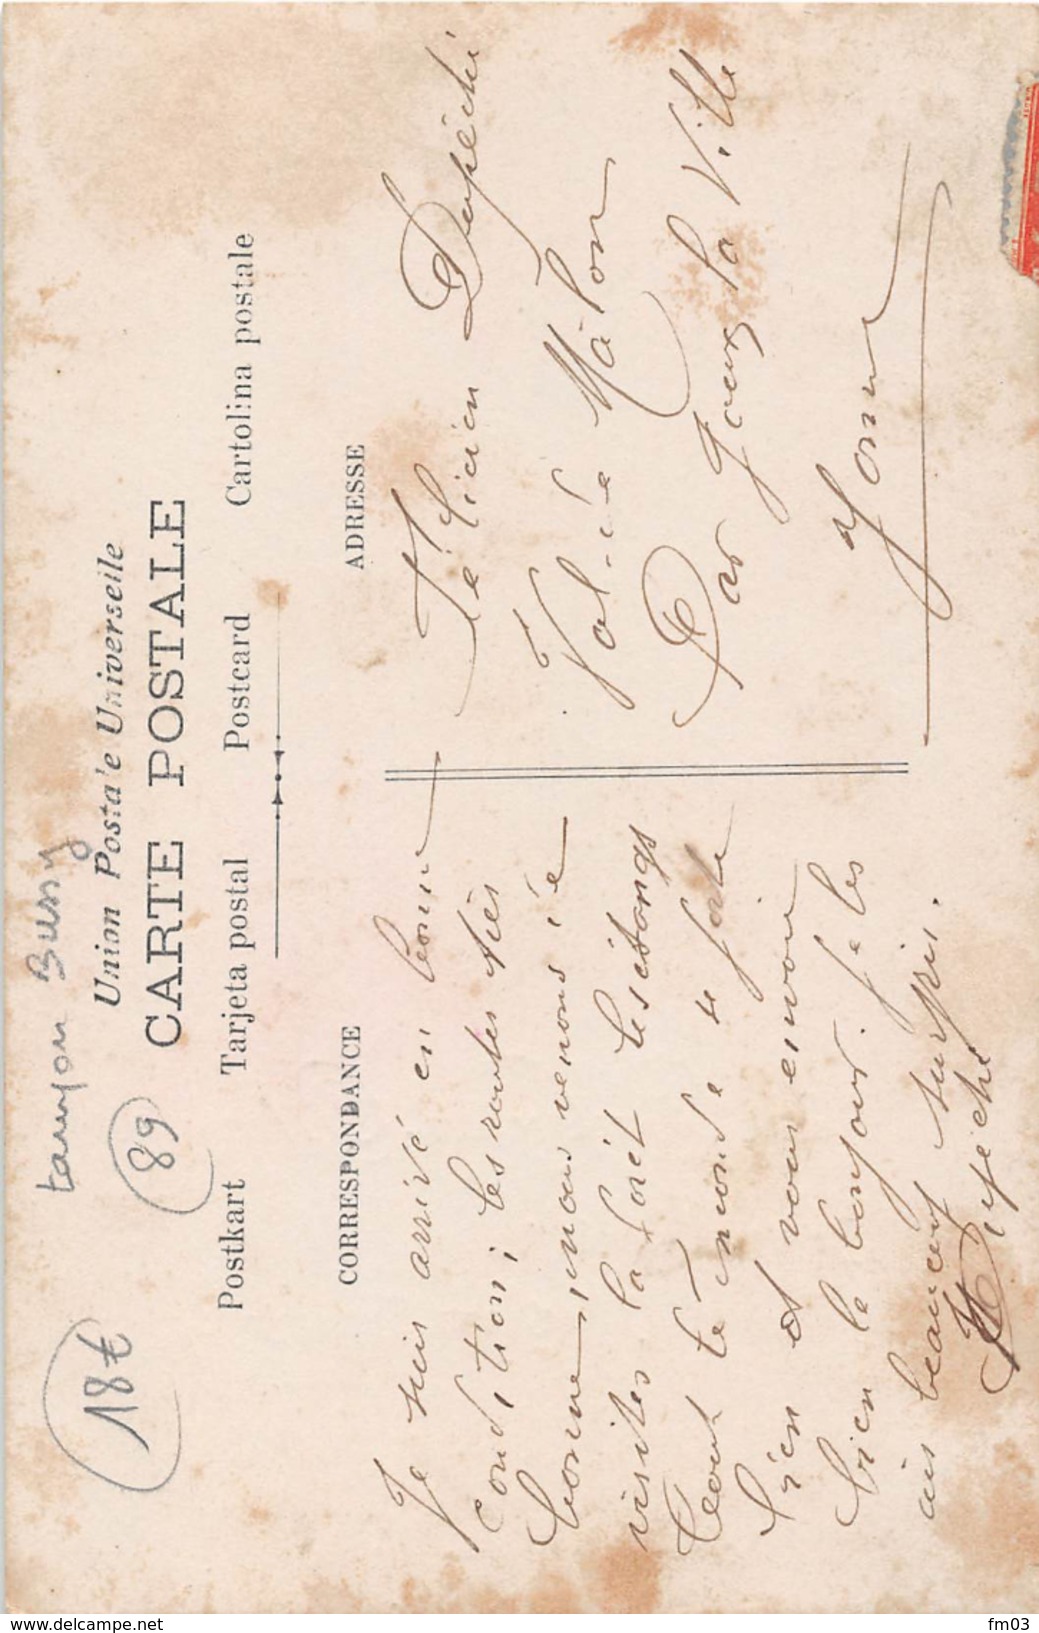 tannion Bussy
18€
89
Union Postale Universelle
CARTE POSTALE
Postkart Tarjeta postal Postcard Cartolina postale
CORRESPONDANCE
ADRESSE
Je suis arrivé en bonne
condition; les routes très
bonne, nous venons de
visiter la forêt les étangs
tout te monde se porte
bien et vous envoie
bien le bonjour. Je les
ais beaucoup surpris.
Félicien
Malon
Par Joux la Ville
Yonne
delcampe.net
fm03